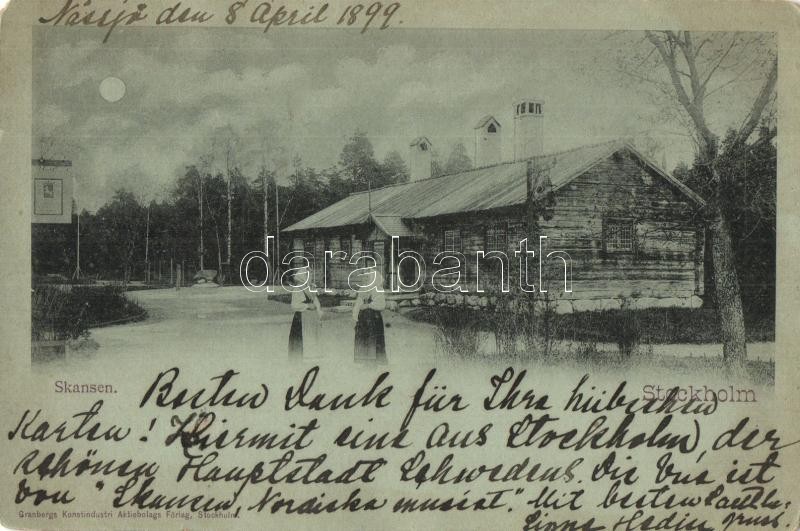 Nässjö den 8 April 1899.
darabanth
Skansen.
Stockholm
Besten Dank für Ihre hübschen
Karten! Hiermit eine aus Stockholm, der
schönen Hauptstadt Schwedens. Die Vue ist
von "Skansen, Nordiska museet." Mit besten
Granbergs Konstindustri Aktiebolags Förlag, Stockholm.